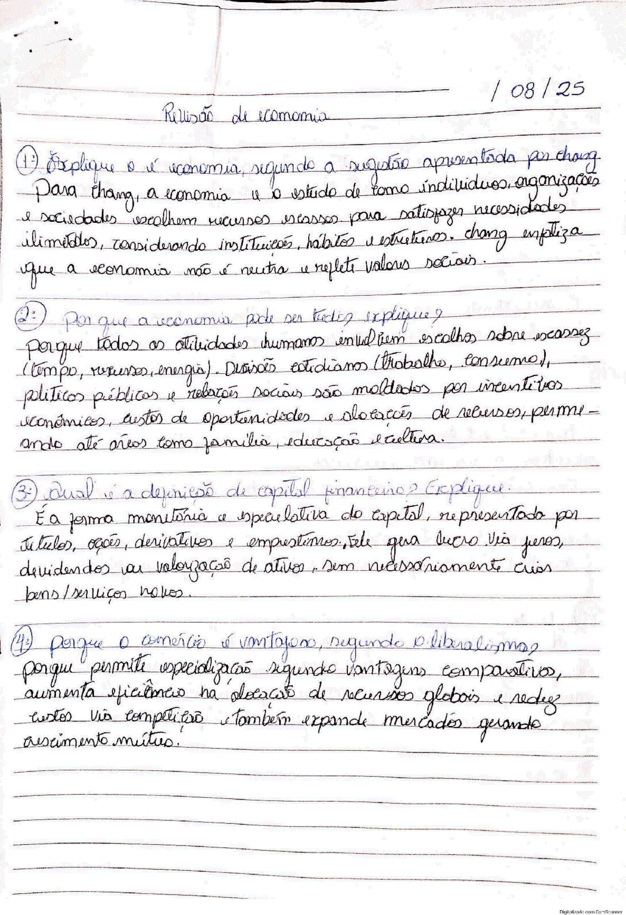 / 08 / 25
Revisão de economia
1ª Explique o é economia, segundo a sugestão apresentada por chang.
Para chang, a economia e o estudo de como individuos, organizações
e sociedades escolhem recursos escassos para satisfazer necessidades
ilimitados, considerando instituições, hábitos e estruturas. chang enfatiza
que a economia não é neutra e reflete valores sociais.
2ª Por que a economia pode ser tudo? explique?
porque todos as atividades humanas envolvem escolhas sobre escassez
(tempo, recursos, energia). Decisões cotidianas (trabalho, consumo),
políticas públicas e relações sociais são moldados por incentivos
econômicos, custos de oportunidades e alocações de recursos, perme-
ando até áreas como família, educação e cultura.
3ª Qual é a definição de capital financeiro? Explique
É a forma monetária e especulativa do capital, representada por
títulos, ações, derivativos e emprestimos, Ele gera lucro via juros,
devidendos ou valorização de ativos, sem necessariamente criar
bens/serviços novos.
4ª porque o comércio é vantajoso, segundo o liberalismo?
porque permite especialização segundo vantagens comparativas,
aumenta eficiência na alocação de recursos globais e reduz
custos via competição e também expande mercados gerando
crescimento mútuo.
Digitalizado com CamScanner